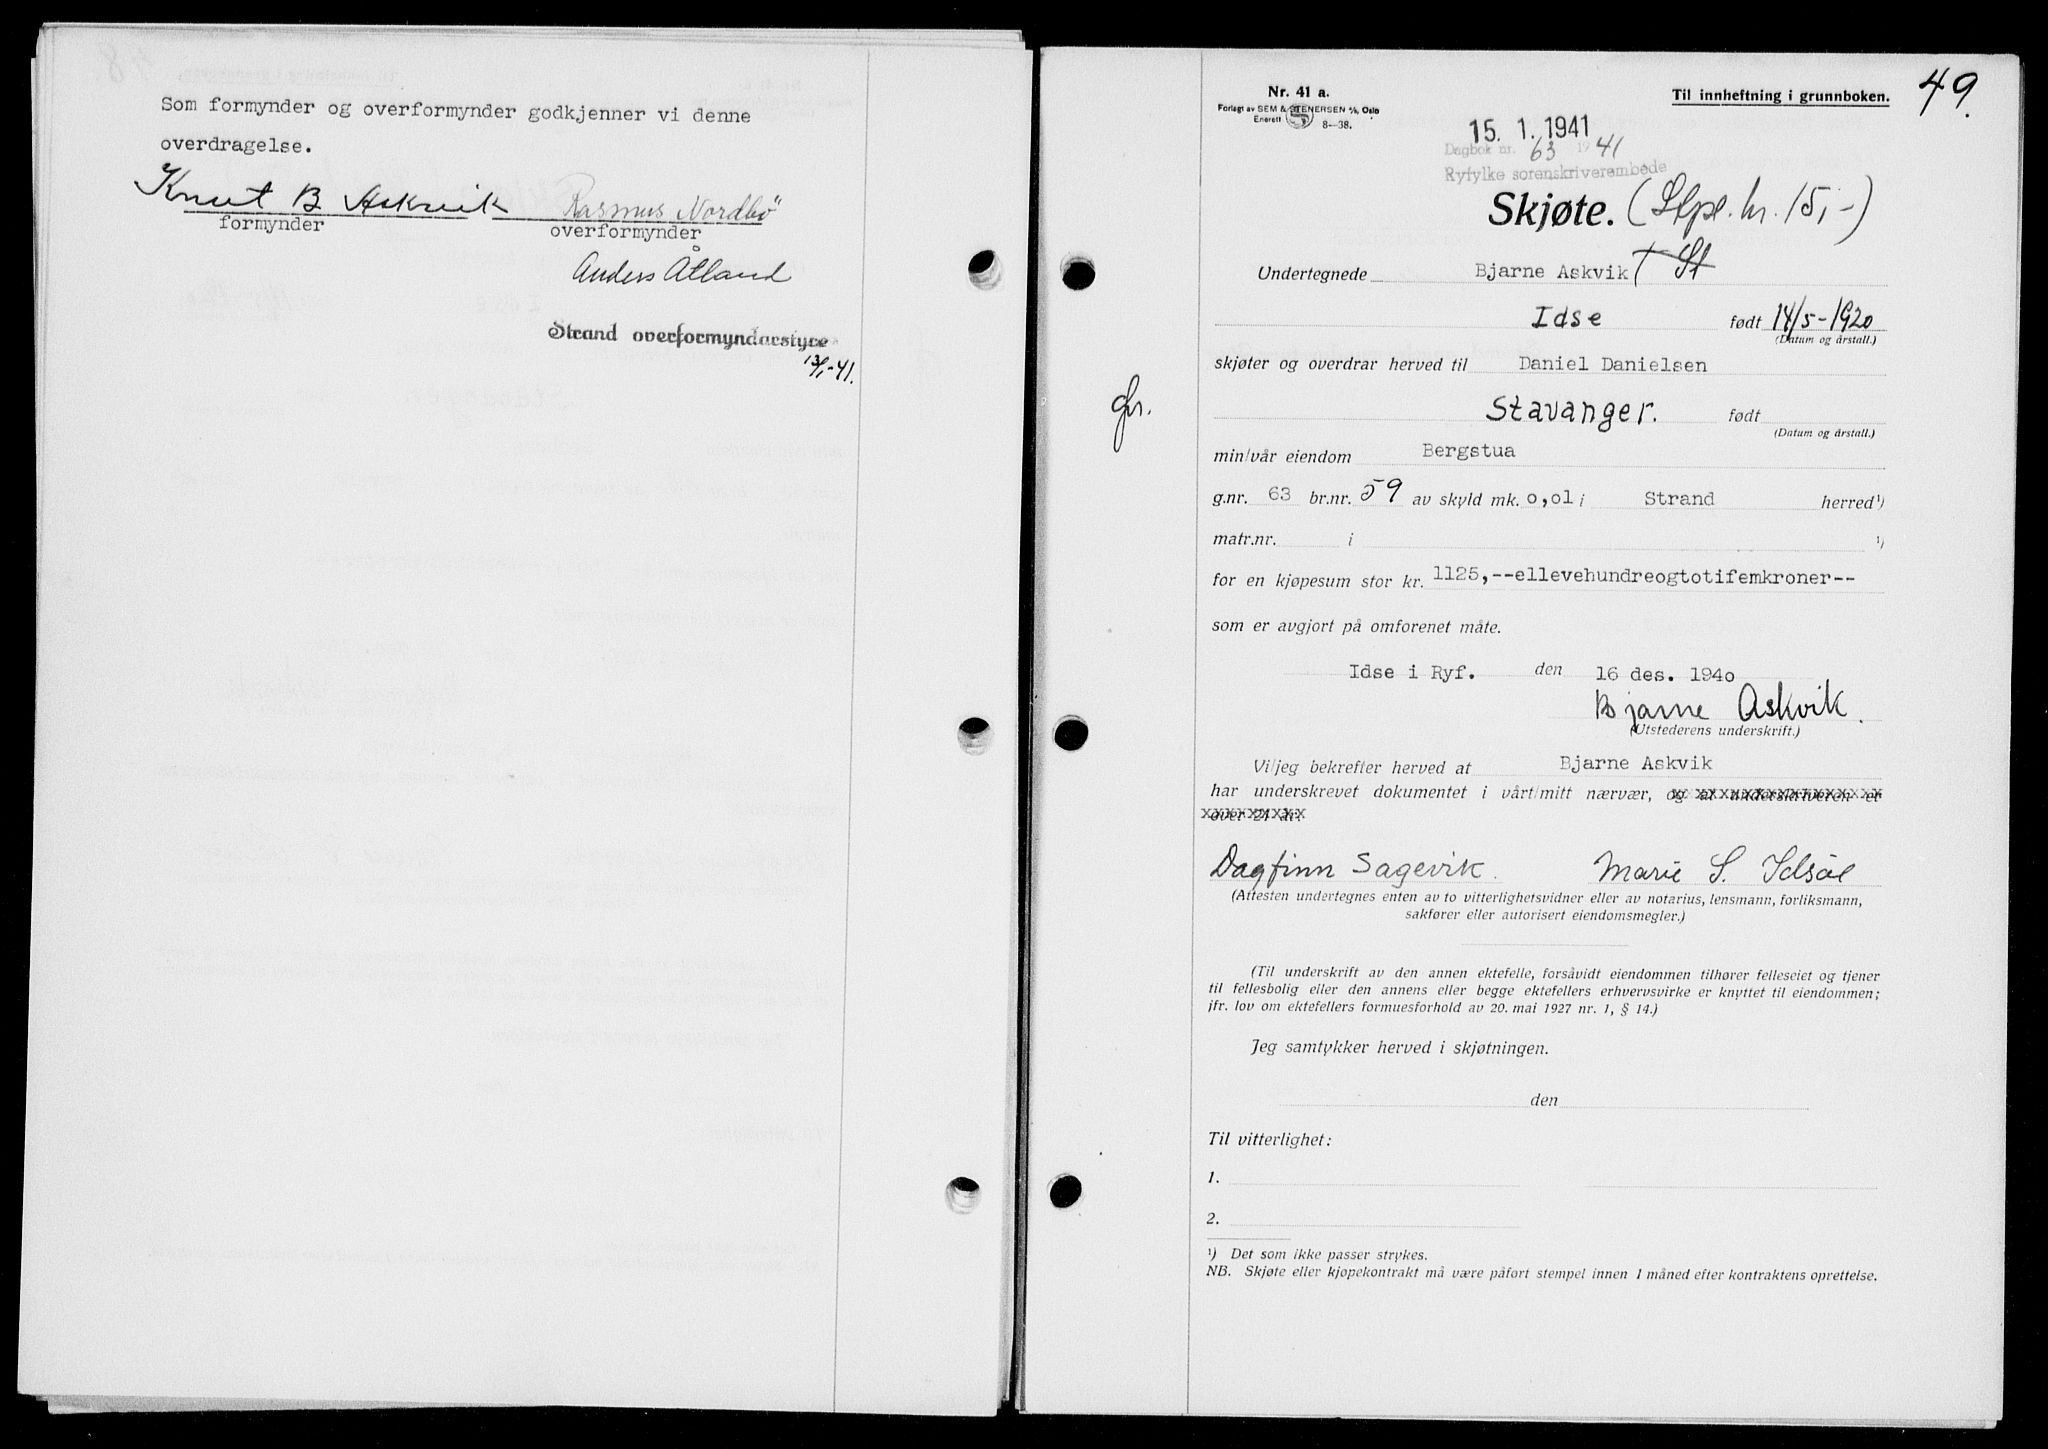 Som formynder og overformynder godkjenner vi denne
overdragelse.
Knut B Askvik Rasmus Nordbö
formynder overformynder
Anders Åtland
Strand overformyndarstyre
13/1-41.
49.
Nr. 41 a.
Forlagt av SEM & STENERSEN A/S, Oslo
Enerett 8—38.
Til innheftning i grunnboken.
15. 1. 1941
Dagbok nr. 63 1941
Ryfylke sorenskriverembede
Skjøte. (Stpl. kr. 15,-)
Undertegnede Bjarne Askvik
Idse født 14/5-1920
(Datum og årstall.)
skjøter og overdrar herved til Daniel Danielsen
Stavanger. født
(Datum og årstall.)
min/vår eiendom Bergstua
g.nr. 63 br.nr. 59 av skyld mk. o,ol i Strand herred¹)
matr.nr. i ¹)
for en kjøpesum stor kr. 1125,--ellevehundreogtotifemkroner--
som er avgjort på omforenet måte.
Idse i Ryf. den 16 des. 1940
Bjarne Askvik.
(Utstederens underskrift.)
Vi/jeg bekrefter herved at Bjarne Askvik
har underskrevet dokumentet i vårt/mitt nærvær, og at underskriveren er
over 21 år.
Dagfinn Sagevik. Marie S. Idsöe
(Attesten undertegnes enten av to vitterlighetsvidner eller av notarius, lensmann, forliksmann,
sakfører eller autorisert eiendomsmegler.)
(Til underskrift av den annen ektefelle, forsåvidt eiendommen tilhører felleseiet og tjener
til fellesbolig eller den annens eller begge ektefellers erhvervsvirke er knyttet til eiendommen;
jfr. lov om ektefellers formuesforhold av 20. mai 1927 nr. 1, § 14.)
Jeg samtykker herved i skjøtningen.
den
Til vitterlighet:
1.
2.
¹) Det som ikke passer strykes.
NB. Skjøte eller kjøpekontrakt må være påført stempel innen 1 måned efter kontraktens oprettelse.